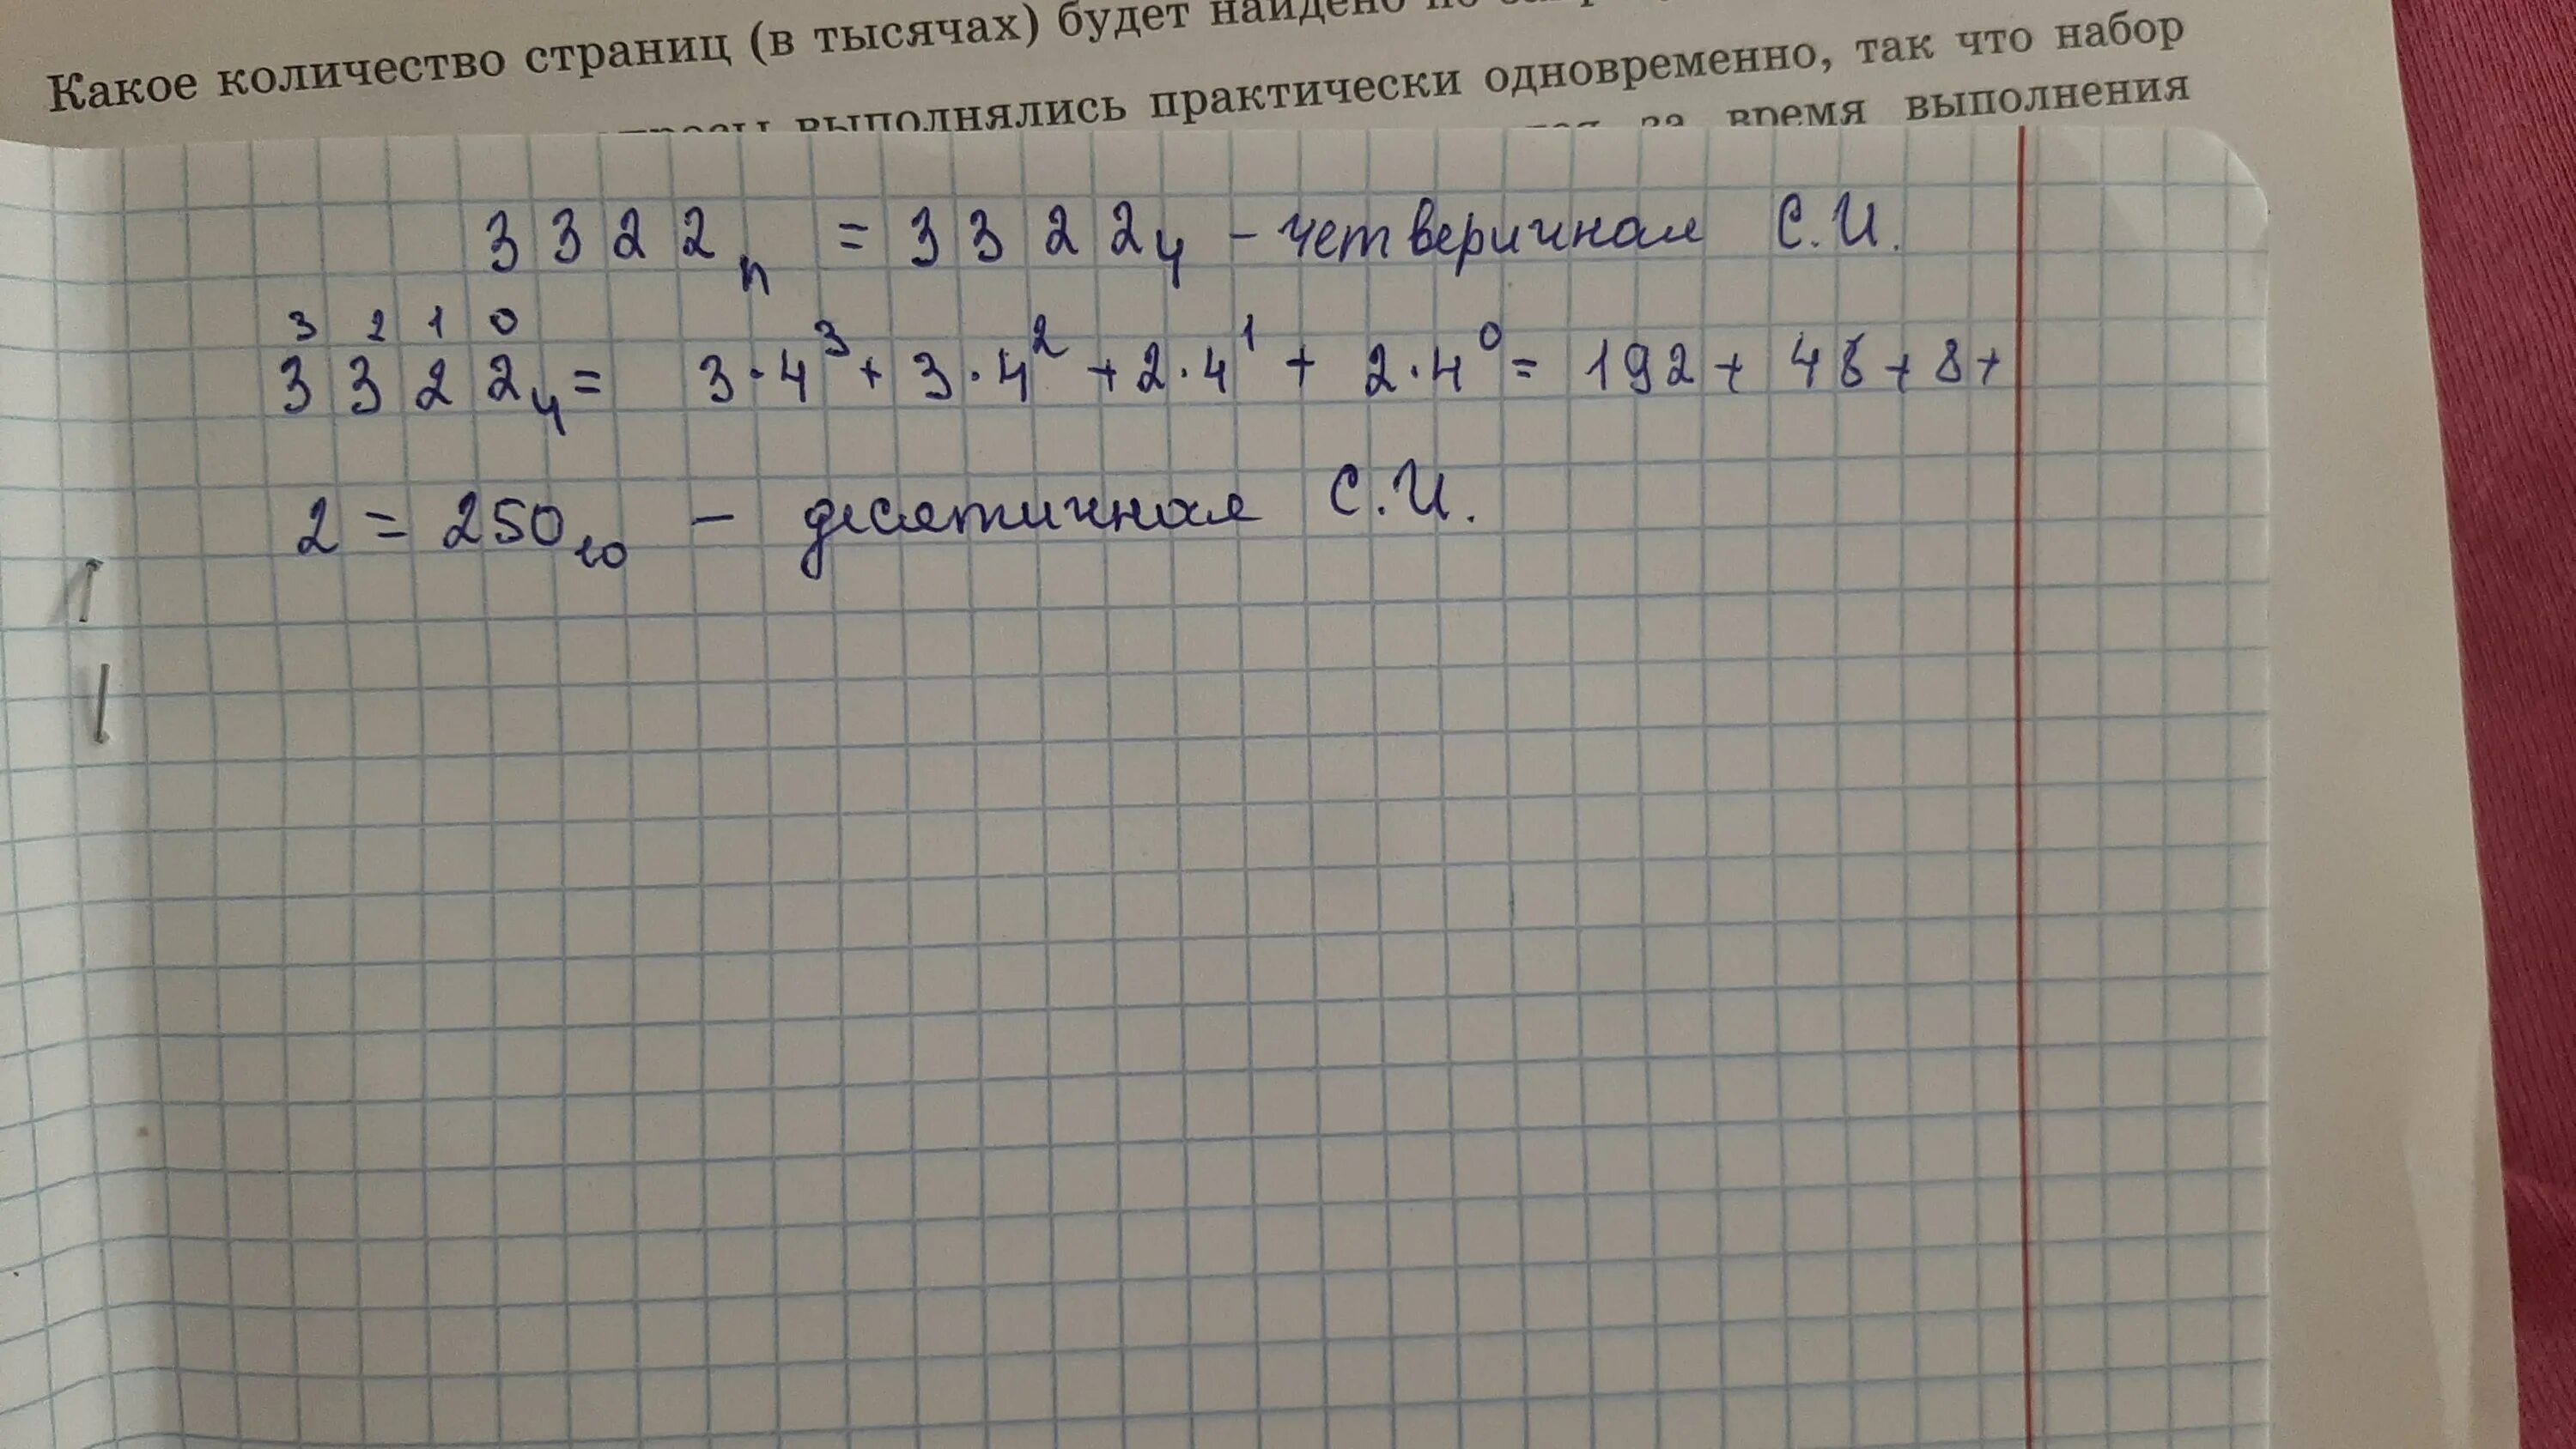 Какое количество страниц (в тысячах) будет найдено
выполнялись практически одновременно, так что набор
за время выполнения
3322n = 3322₄ - четверичная С.И.
3 2 1 0
3322₄ = 3·4³ + 3·4² + 2·4¹ + 2·4⁰ = 192 + 48 + 8 +
2 = 250₁₀ - десятичная С.И.